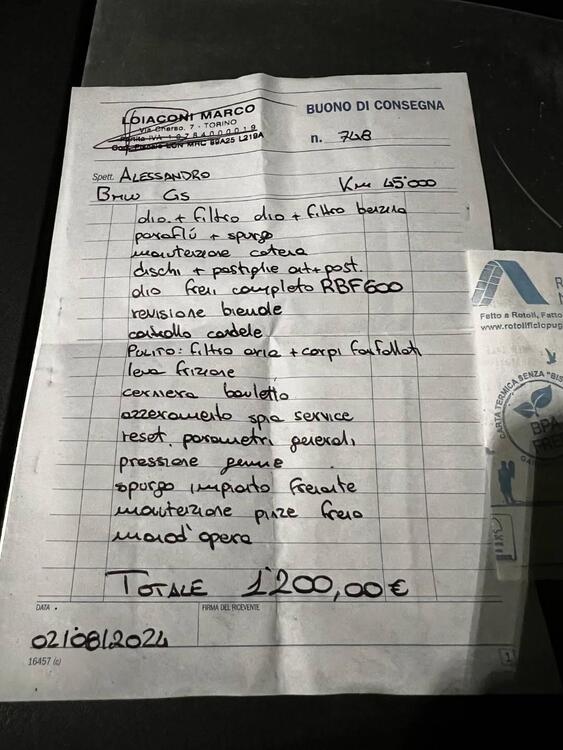 LOIACONI MARCO
Via Cherso, 7 - TORINO
Partita IVA 10784000019
BUONO DI CONSEGNA
n. 748
Spett. ALESSANDRO
BMW GS Km 45'000
olio + filtro olio + filtro benzina
paraflù + spurgo
manutenzione catena
dischi + pastiglie ant + post.
olio freni completo RBF600
revisione bienale
controllo candele
PULITO: filtro aria + corpi farfallati
leva frizione
cerniera bauletto
azzeramento spia service
reset parametri generali
pressione gomme
spurgo impianto frenante
manutenzione pinze freno
manod'opera
TOTALE 1'200,00 €
DATA
FIRMA DEL RICEVENTE
02/08/2024
16457 (c)
1
Fetto a Rotoli, Fatto
www.rotolificiopug
CARTA TERMICA SENZA "BIS
BPA
FREE